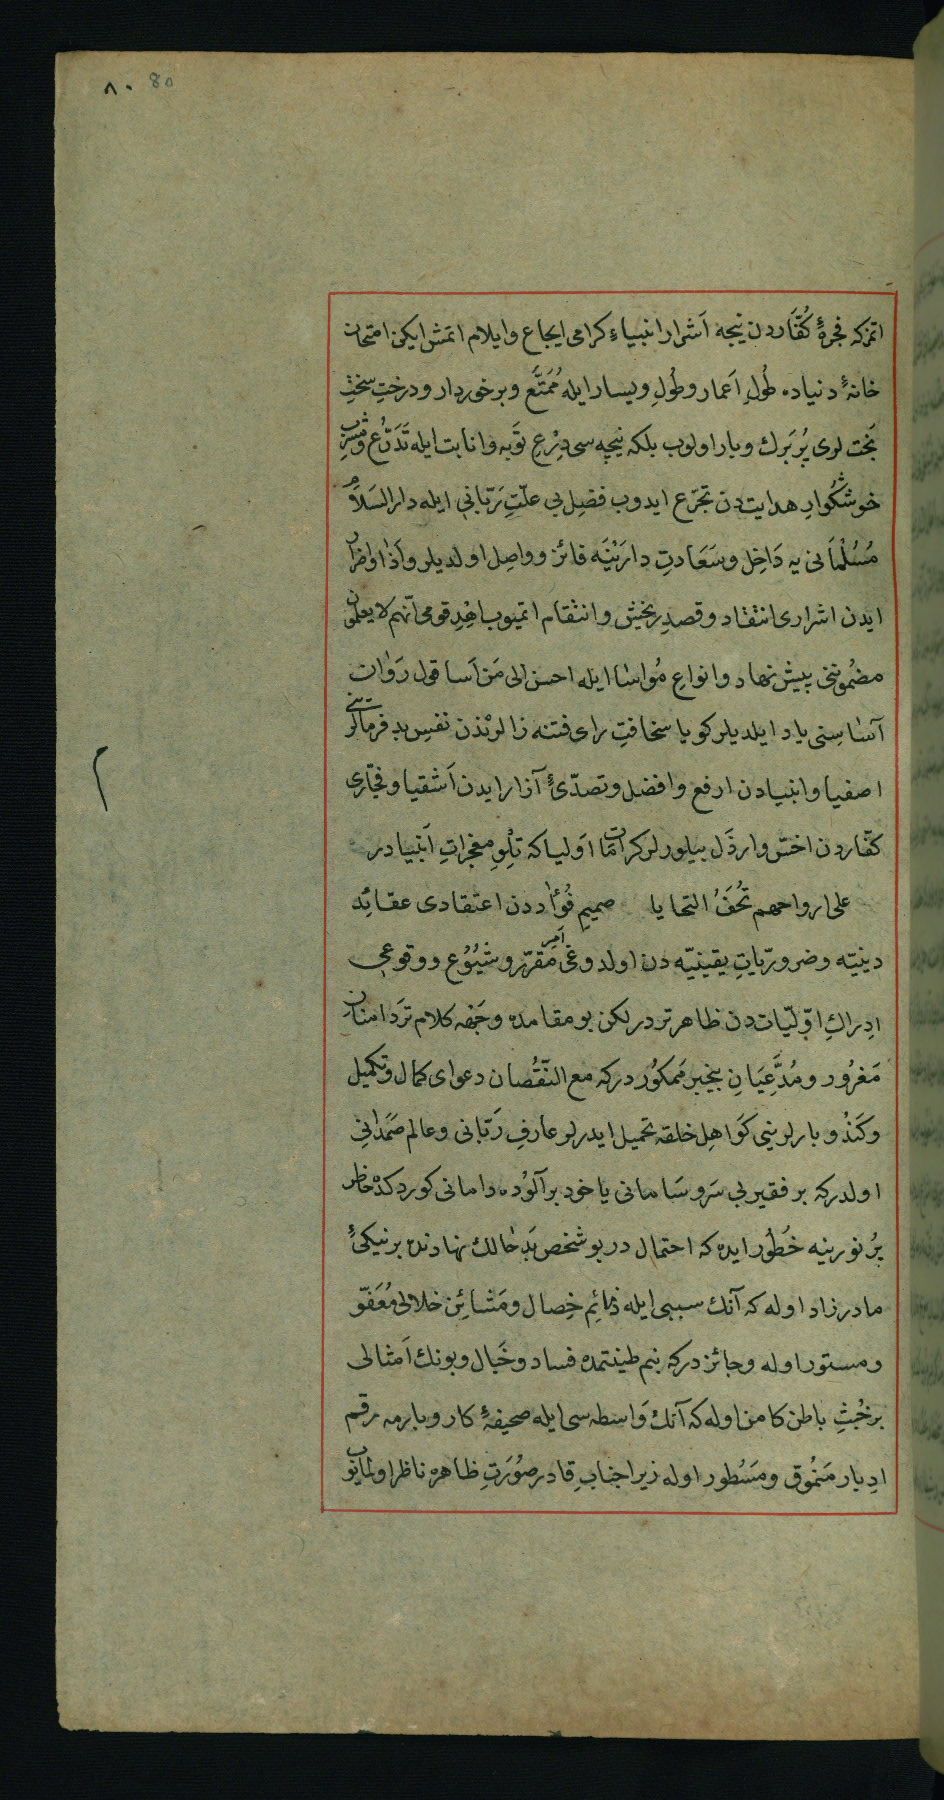 ۸۰ 80
اتمزكه فجرۀ كُفّاردن نيجه اَشرار انبياءِ كرامى ايجاع وايلام اتمش ايكن امتحان
خانۀ دنياده طُولِ اَعمار وطُولِ ويسار ايله مُمَتَّع وبرخوردار ودرختِ سختِ
بَخت لرى پُر بَرك وبار اولوب بلكه نيچه سى دِرْعِ تَوبه وانابت ايله تَدَرُّع وشربِ
خوشكوارِ هدايتدن تجرّع ايدوب فضلِ بى علّتِ رَبّانى ايله دار السَلام
مُسُلْمانى يه دَاخِل وسَعَادتِ دارَيْنَه فائز وواصل اولديلر واَذا واضرار
ايدن اشرارى انتقاد وقصدِ رنجش وانتقام اتميوب اهْدِ قومى انّهم لا يعلمون
مضمُوننى پيش نهاد وانواعِ مُواسٰا ايله احسن الى مَن اَسا قول رَوٰان
آسٰاسِنى ياد ايلديلر كويا سخافتِ راى فتنه زالرندن نفسِ بد فرمالرينى
اصفيا وانبيادن ارفع وافضل وتصدّئ آزار ايدن اَشقيا وفجّارى
كفّاردن اخسّ وارذَل بيلورلر كرامات اَوليا كه تِلْوِ معجزاتِ اَنبيادر
على ارواحهم تُحَفُ التحايا صميمِ فُؤٰاددن اعتقادى عقائِد
دينيّه وضروريّاتِ يقينيّه دن اولدوغى امر مقرّر وشيُوُع ووقوعى
ادراكِ اوّليّاتدن ظاهرتردر لكن بو مقامده وجهه كلام تردامنان
مَغرُور ومُدَّعِيَانِ بيخبر مَمكوُردركه مع النُّقْصان دعواى كمال وتكميل
وكَنْدُو بارلرينى كَوَاهلِ خلقه تحميل ايدرلر عارفِ رَبّانى وعالم صَمَدانى
اولدركه بر فقيرِ بى سَروسَامانى ياخود بر آلوُده دامانى كوردكده خاطرِ
پُر نورينه خُطُور ايده كه احتمال در بو شخص بَد حٰالك نهادنده بر نيكئ
مادرزاد اوله كه آنك سببى ايله ذمائِمِ خِصال ومَشائِنِ خلالى مُعَفّو
ومستور اوله وجائزدركه بنم طينتمده فساد وخَبال وبونك اَمثالى
بر خُبْثِ باطن كامن اوله كه آنك وَاسطه سى ايله صحيفۀ كار وبارمه رقم
ادبار مَنمُوق ومَسْطور اوله زيرا جنابِ قادر صُوُرَتِ ظاهره ناظر اولمايوب